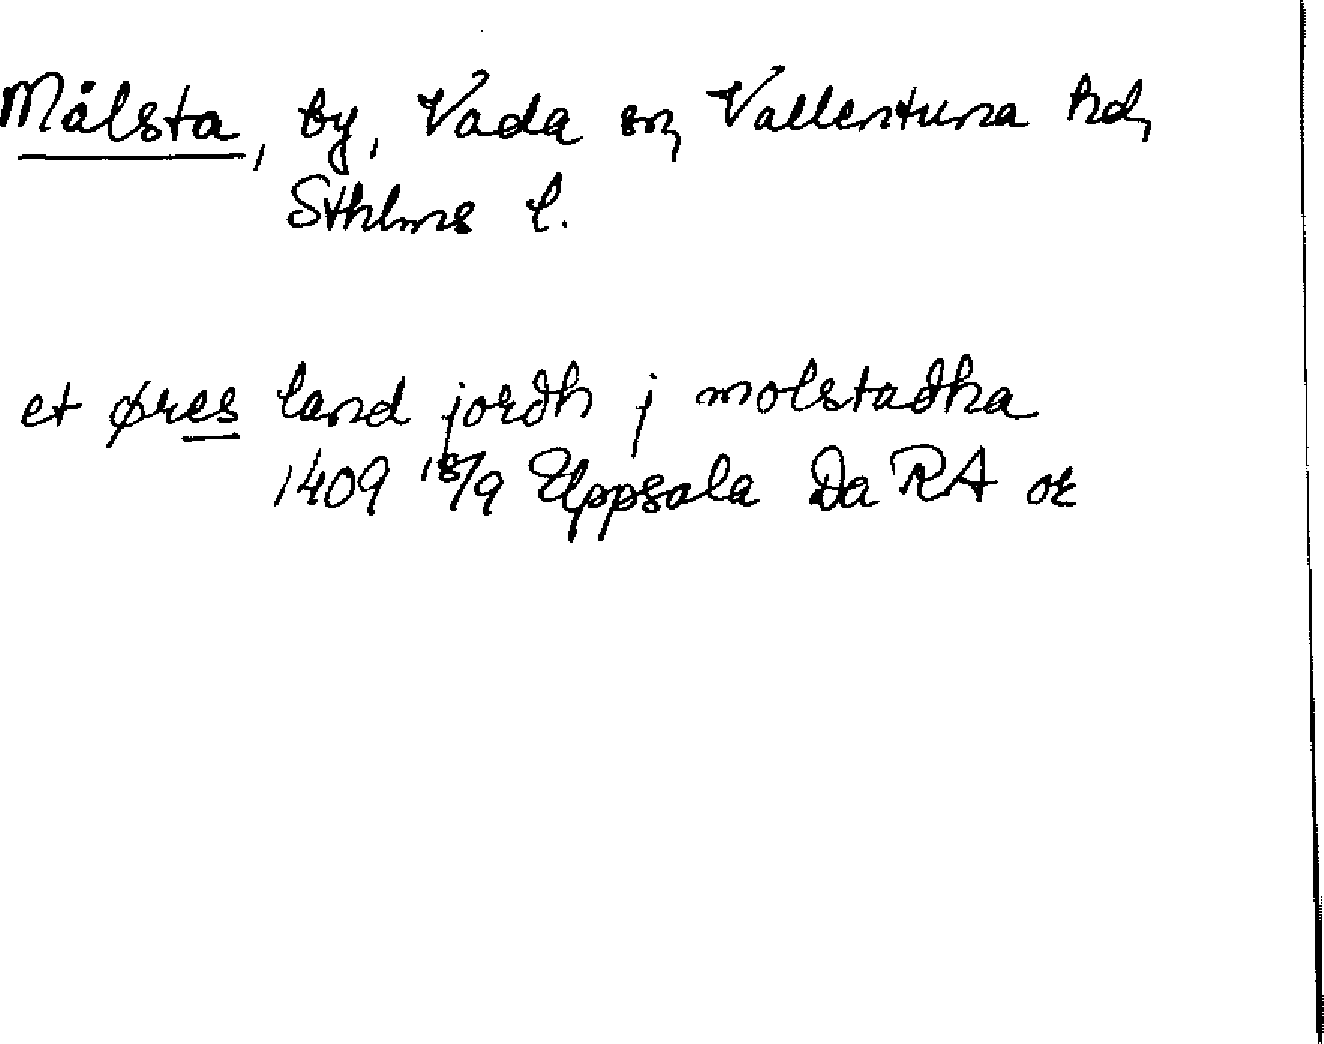 Målsta, by, Vada sn, Vallentuna hd,
Sthlms l.
et øres land jordh j molstadha
1409 18/9 Uppsala Da RA or